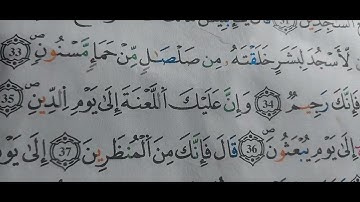 السَّٰجِدِينَ
لِأَسْجُدَ لِبَشَرٍ خَلَقْتَهُۥ مِن صَلْصَٰلٍ مِّنْ حَمَإٍ مَّسْنُونٍ 33
فَإِنَّكَ رَجِيمٌ 34 وَإِنَّ عَلَيْكَ ٱللَّعْنَةَ إِلَىٰ يَوْمِ ٱلدِّينِ 35
إِلَىٰ يَوْمِ يُبْعَثُونَ 36 قَالَ فَإِنَّكَ مِنَ ٱلْمُنظَرِينَ 37 إِلَىٰ يَوْمِ